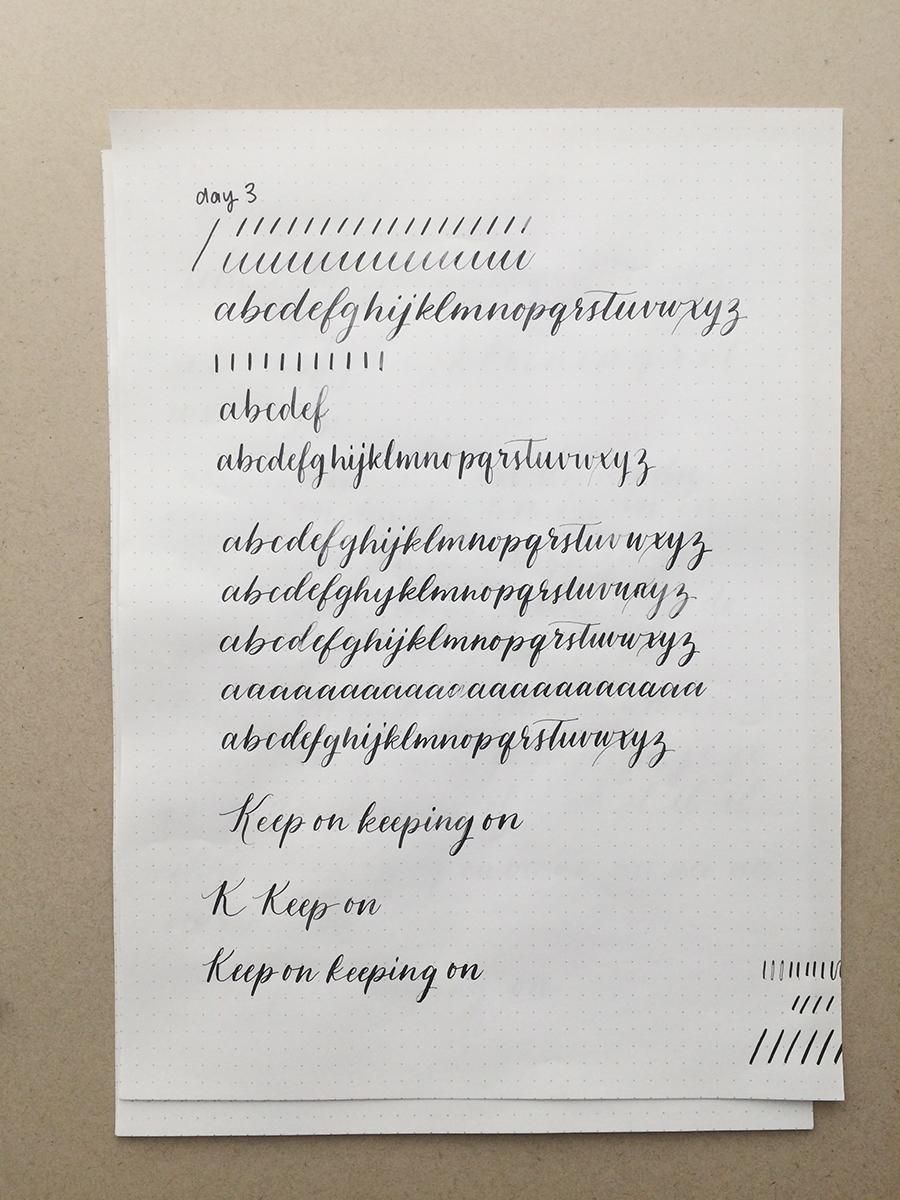 day 3
abcdefghijklmnopqrstuvwxyz
abcdef
abcdefghijklmnopqrstuvwxyz
abcdefghijklmnopqrstuvwxyz
abcdefghijklmnopqrstuvwxyz
abcdefghijklmnopqrstuvwxyz
aaaaaaaaaaaaaaaaaaaaaaaa
abcdefghijklmnopqrstuvwxyz
Keep on keeping on
K Keep on
Keep on keeping on